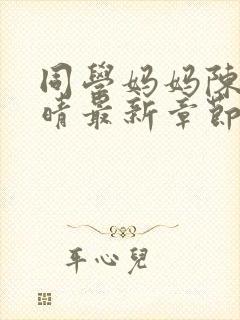 同學媽媽陳
晴最新章節
平心兒